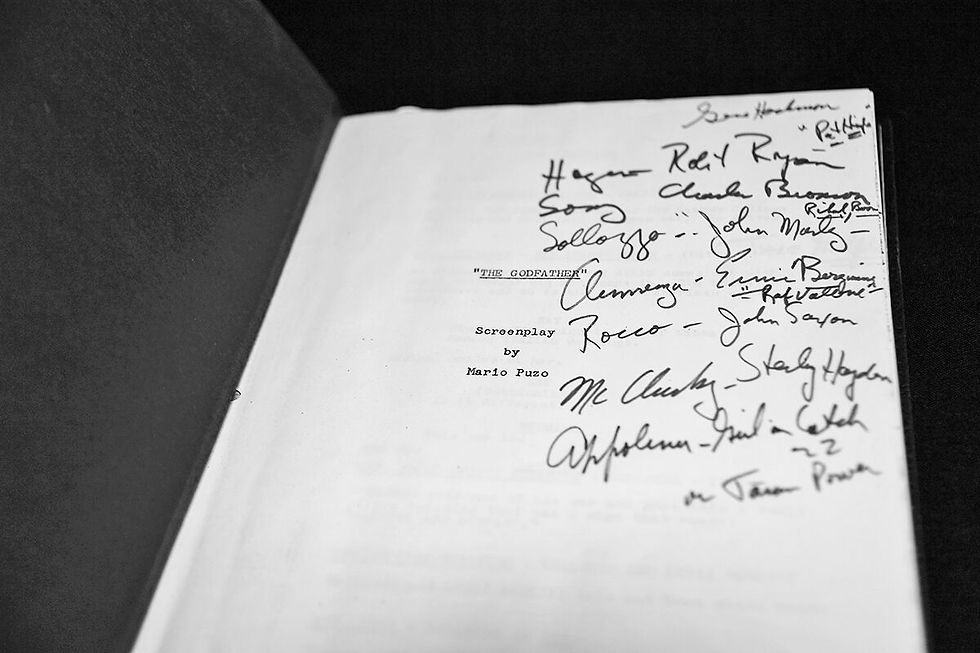 Gene Hackman
"Pat Hingle"
Hagen Robt Ryan
Sonny Charles Bronson
Richard Boone
Sollozzo -:- John Marly -
"THE GODFATHER"
Clemenza - Ernie Borgnine
"Raf Vallone"
Screenplay
by
Mario Puzo
Rocco - John Saxon
Mc Clusky - Sterling Hayden
Appolonia - Girl in Catch
22
or Taran Power